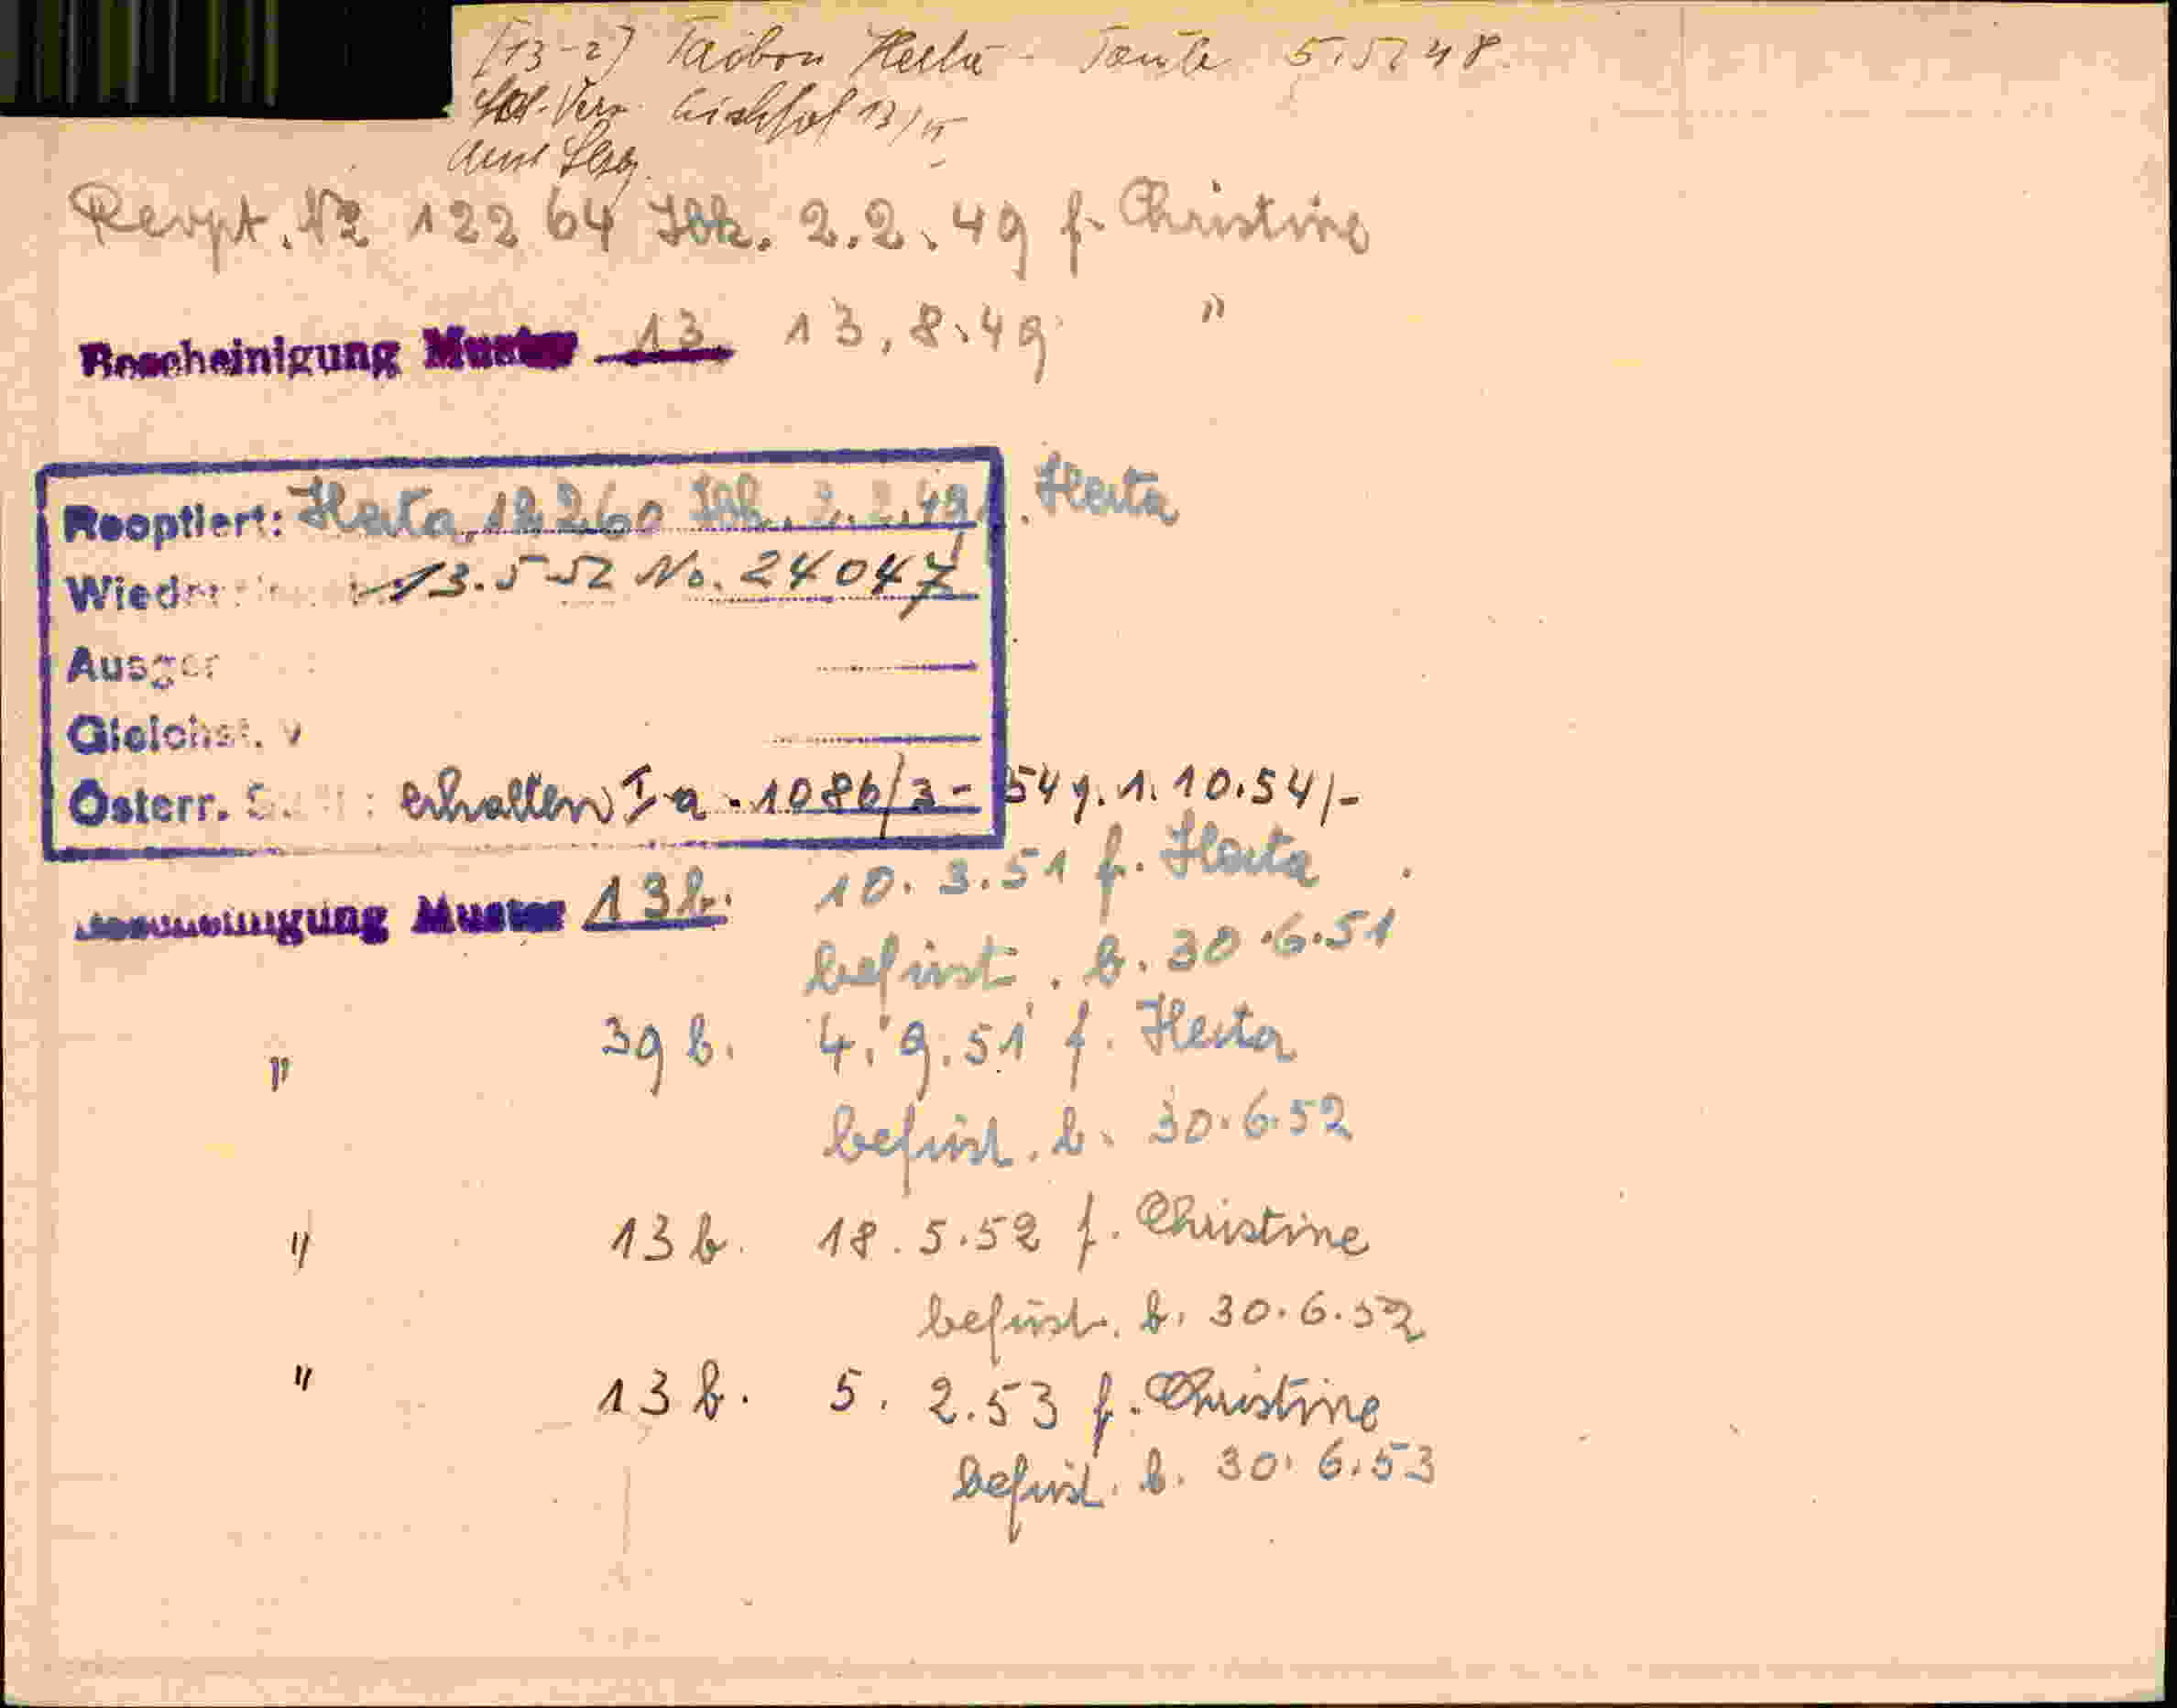 [13-2] Herta - Tante 5.5.48.
Revpt. No 12264 Ibk. 2.2.49 f. Christine
Bescheinigung Muster 13 13.8.49 "
Reoptiert: Herta, 12260 Ibk. 2.2.49 f. Herta
13.5.52 No. 24047
Österr. erhalten I a - 1086/3 - 54 g. 1.10.54/-
Muster 13 b. 10.3.51 f. Herta
befrist. b. 30.6.51
" 39 b. 4.9.51 f. Herta
befrist. b. 30.6.52
" 13 b. 18.5.52 f. Christine
befrist. b. 30.6.52
" 13 b. 5.2.53 f. Christine
befrist. b. 30.6.53